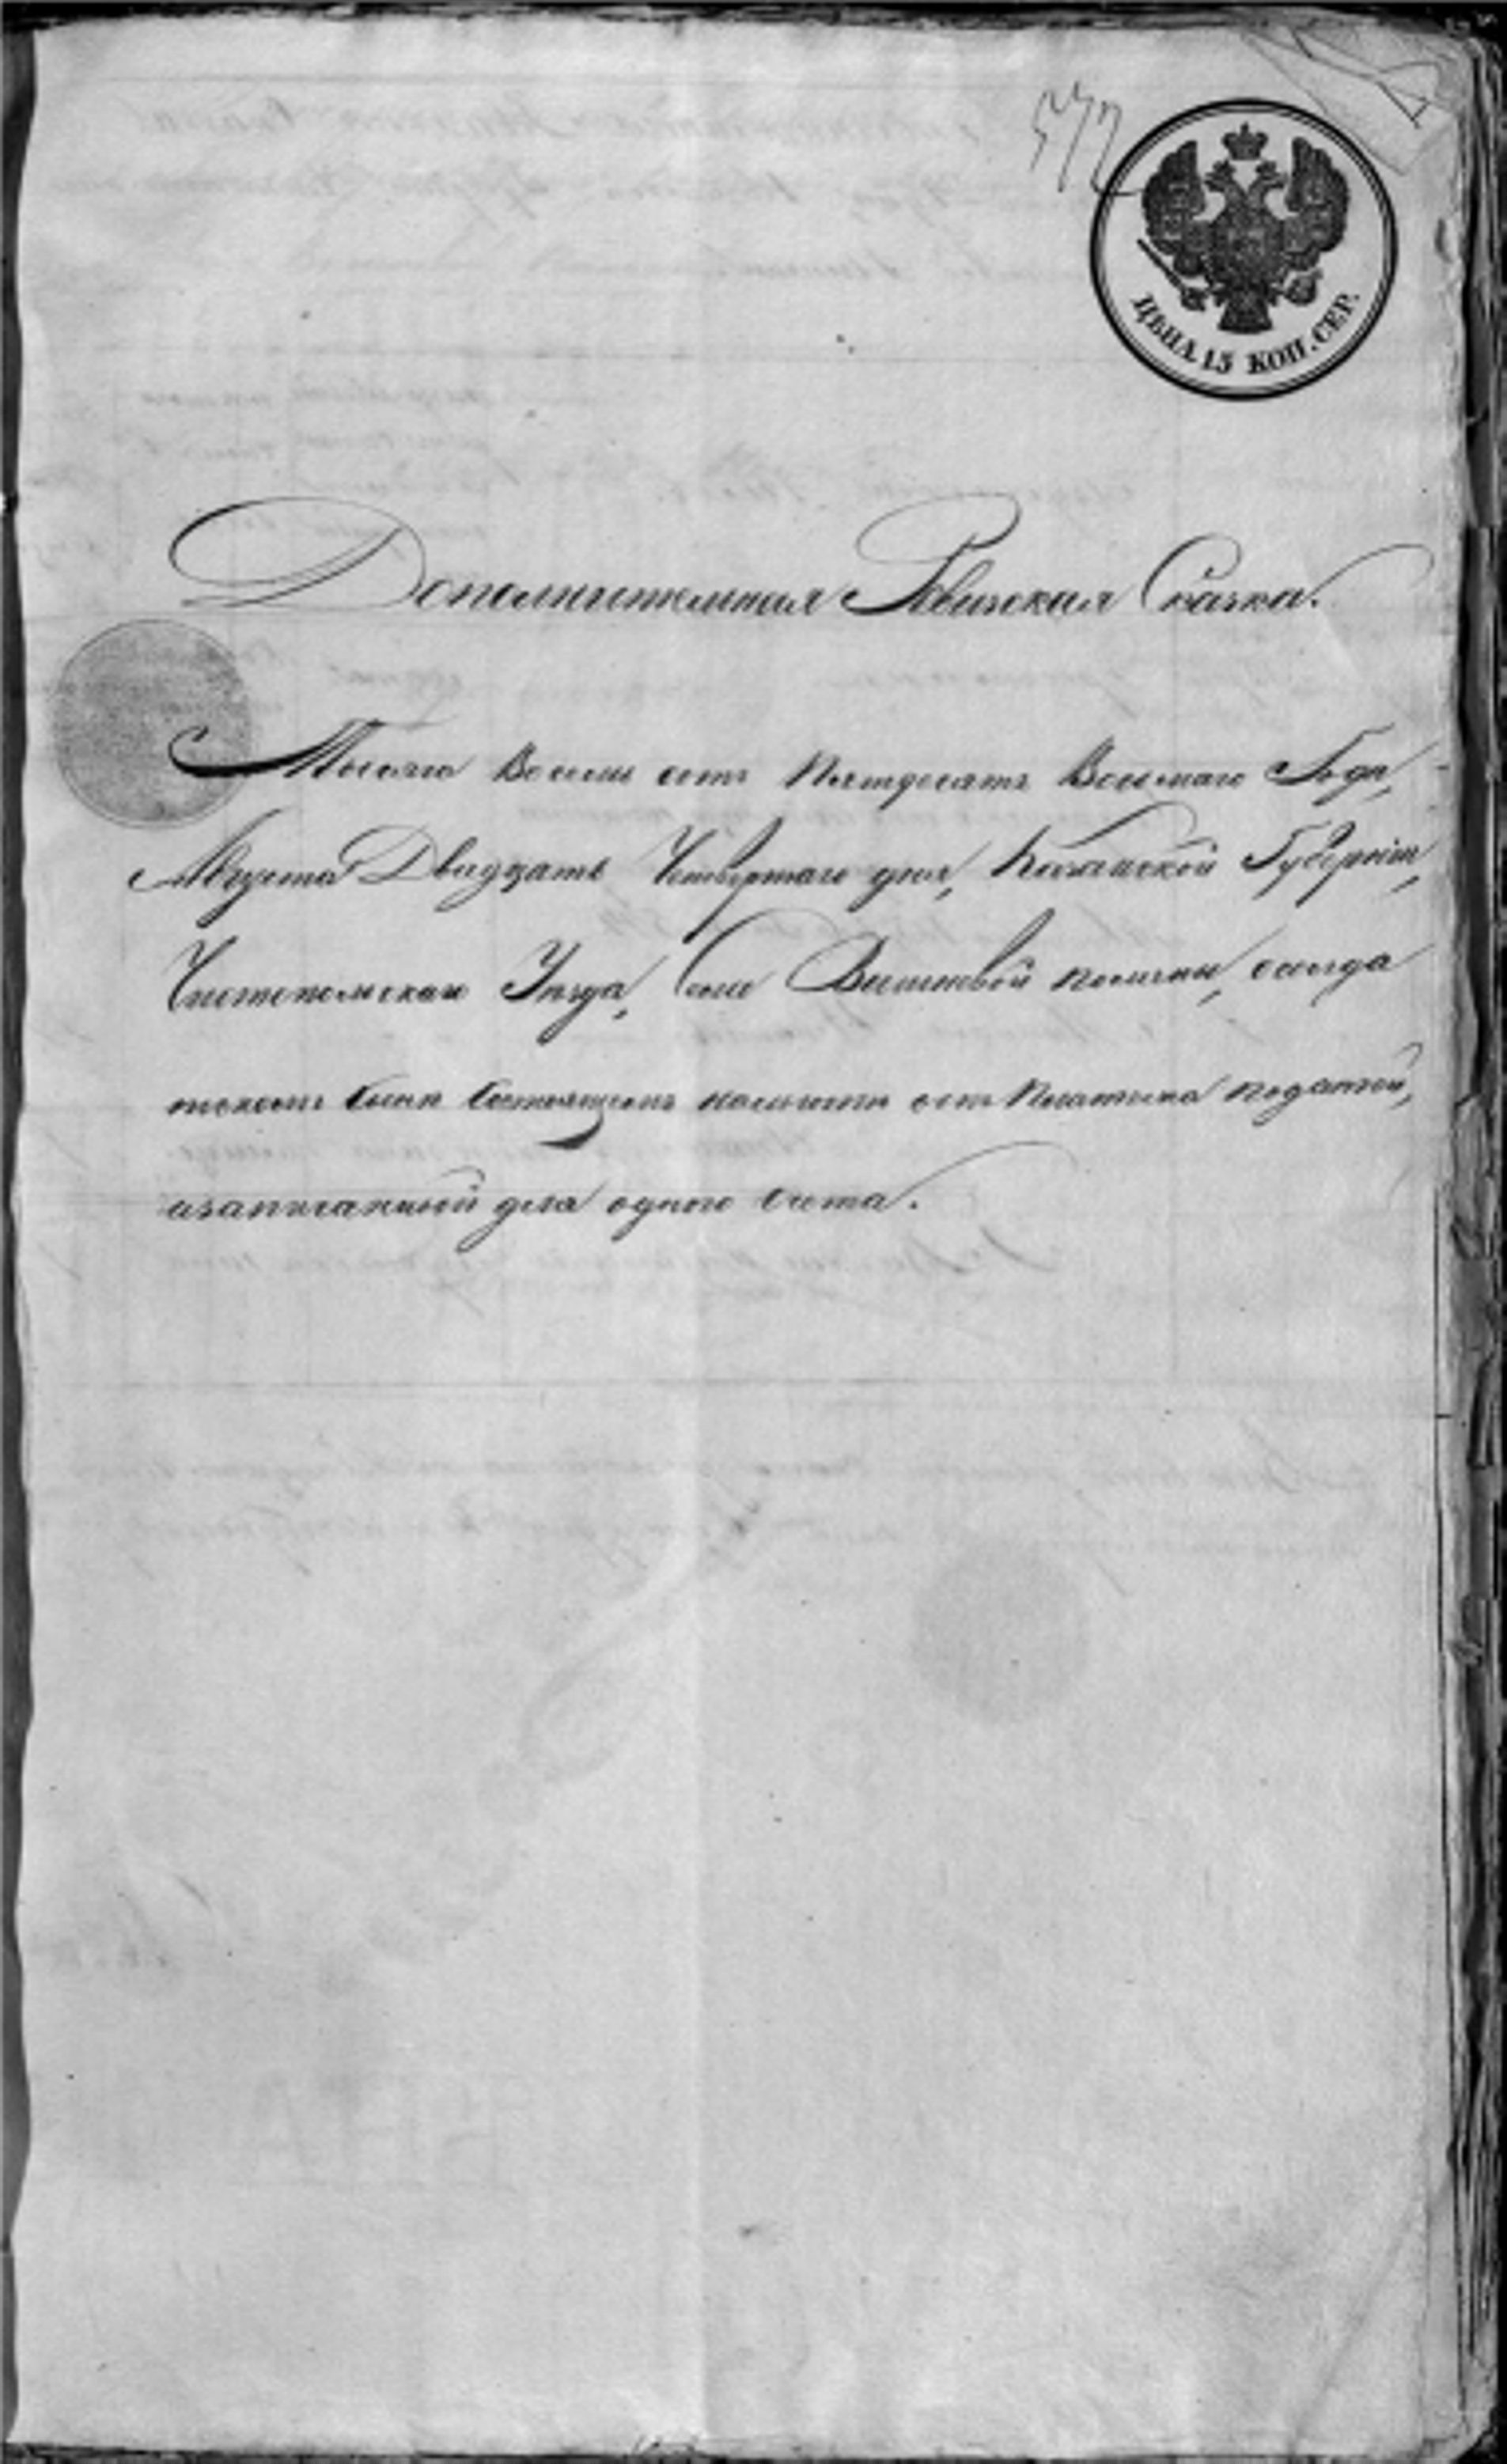 572
ЦѢНА 15 КОП. СЕР.
Дополнительная Ревизская Сказка.
Тысяча Восемь сотъ Пятьдесятъ Восьмаго Года,
Августа Двадцать Четвертаго дня, Казанской Губерніи,
Чистопольскаго Уѣзда, Села Вишневой поляны, солда
наличіи поданной,
изаписанной для одного счета.